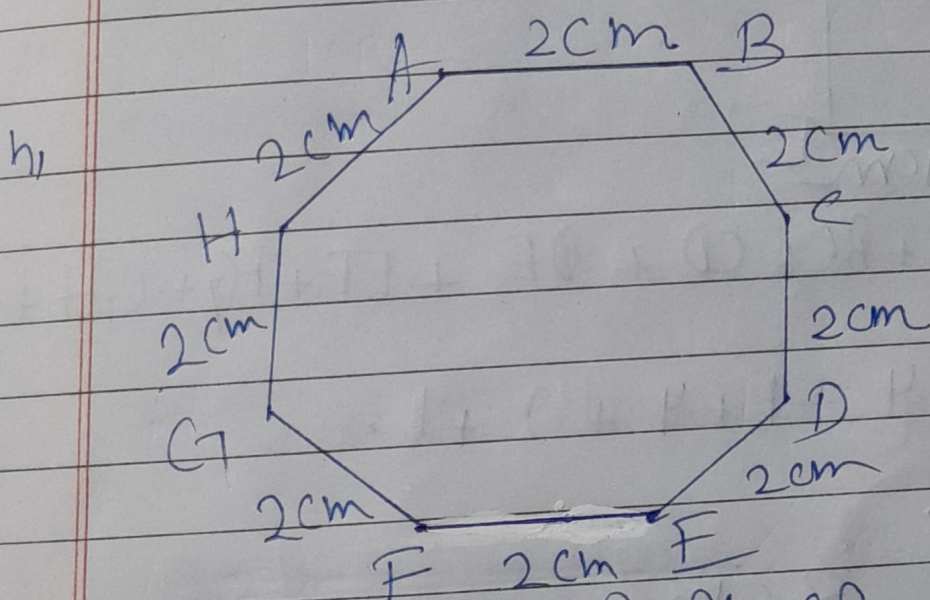 A 2cm B
h,
2cm
2cm
H C
2cm
2cm
G D
2cm
2cm
F 2cm E